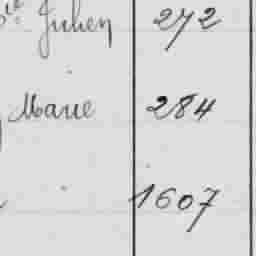 Ste Julien 272
Marie 284
1607